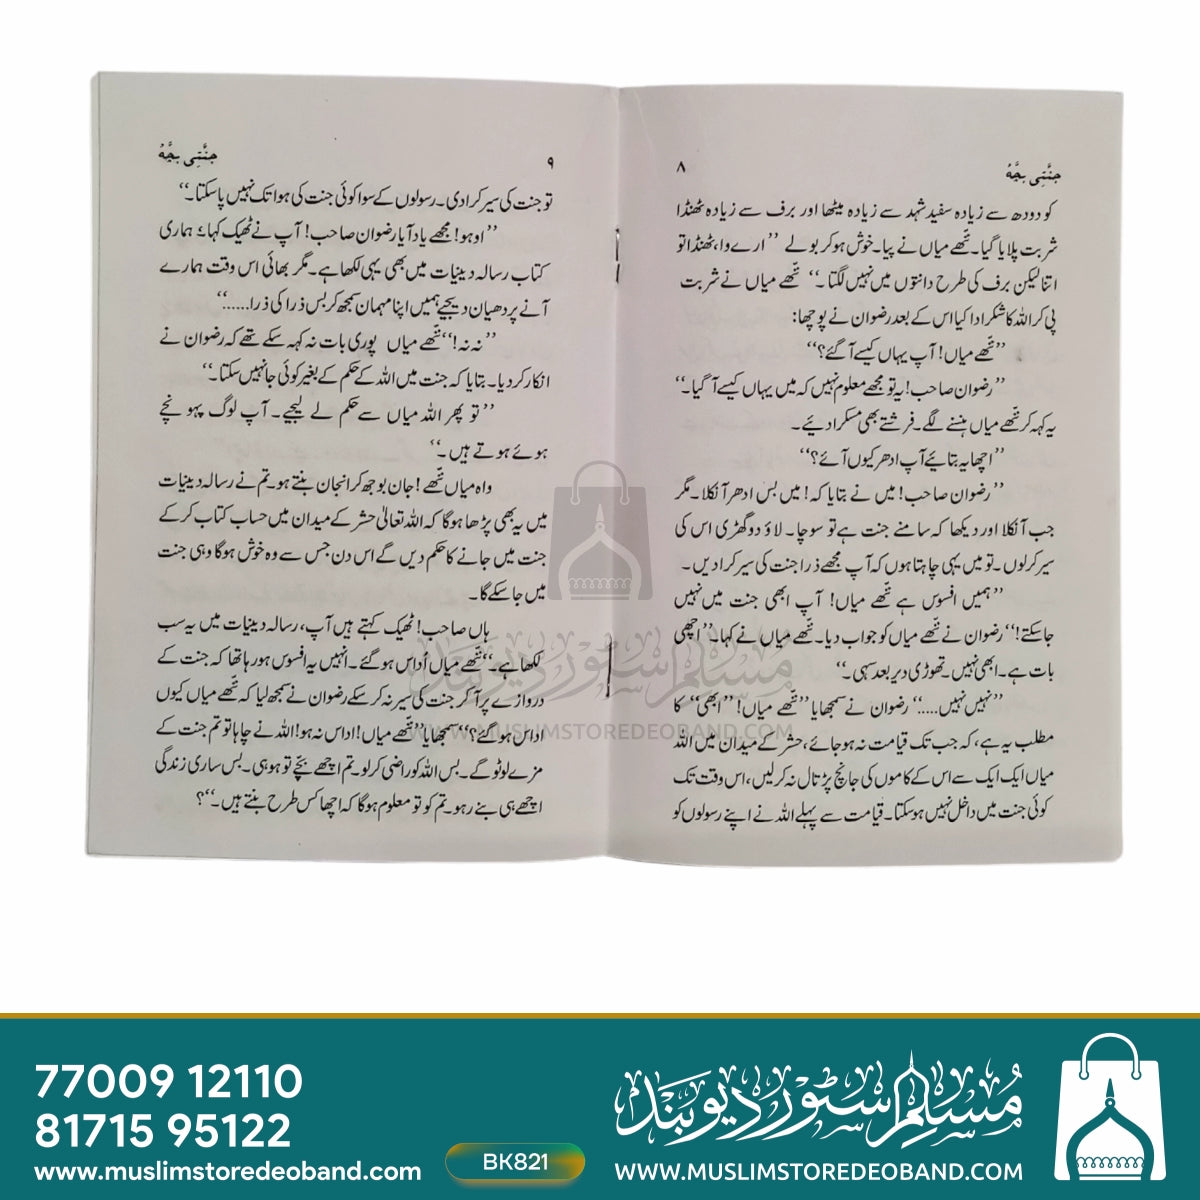 جنَّتِی بچَّہ
۸
کو دودھ سے زیادہ سفید شہد سے زیادہ میٹھا اور برف سے زیادہ ٹھنڈا
شربت پلایا گیا۔ ننھے میاں نے پیا۔ خوش ہو کر بولے ”ارے وا، ٹھنڈا تو
اتنا لیکن برف کی طرح دانتوں میں نہیں لگتا۔“ ننھے میاں نے شربت
پی کر اللہ کا شکر ادا کیا اس کے بعد رضوان نے پوچھا:
”ننھے میاں! آپ یہاں کیسے آ گئے؟“
”رضوان صاحب! یہ تو مجھے معلوم نہیں کہ میں یہاں کیسے آ گیا۔“
یہ کہہ کر ننھے میاں ہنسنے لگے۔ فرشتے بھی مسکرا دیے۔
”اچھا یہ بتائیے آپ ادھر کیوں آئے؟“
”رضوان صاحب! میں نے بتایا کہ! میں بس ادھر آ نکلا۔ مگر
جب آ نکلا اور دیکھا کہ سامنے جنت ہے تو سوچا۔ لاؤ دو گھڑی اس کی
سیر کر لوں۔ تو میں یہی چاہتا ہوں کہ آپ مجھے ذرا جنت کی سیر کرا دیں۔
”ہمیں افسوس ہے ننھے میاں! آپ ابھی جنت میں نہیں
جا سکتے!“ رضوان نے ننھے میاں کو جواب دیا۔ ننھے میاں نے کہا۔ ”اچھی
بات ہے۔ ابھی نہیں۔ تھوڑی دیر بعد سہی۔“
”نہیں نہیں.....“ رضوان نے سمجھایا ”ننھے میاں! ”ابھی“ کا
مطلب یہ ہے، کہ جب تک قیامت نہ ہو جائے، حشر کے میدان میں اللہ
میاں ایک ایک سے اس کے کاموں کی جانچ پڑتال نہ کر لیں، اس وقت تک
کوئی جنت میں داخل نہیں ہو سکتا۔ قیامت سے پہلے اللہ نے اپنے رسولوں کو
۹
جنَّتِی بچَّہ
تو جنت کی سیر کرا دی۔ رسولوں کے سوا کوئی جنت کی ہوا تک نہیں پا سکتا۔“
”اوہو! مجھے یاد آیا رضوان صاحب! آپ نے ٹھیک کہا، ہماری
کتاب رسالہ دینیات میں بھی یہی لکھا ہے۔ مگر بھائی اس وقت ہمارے
آنے پر دھیان دیجیے ہمیں اپنا مہمان سمجھ کر بس ذرا کی ذرا......“
”نہ نہ!“ ننھے میاں پوری بات نہ کہہ سکے تھے کہ رضوان نے
انکار کر دیا۔ بتایا کہ جنت میں اللہ کے حکم کے بغیر کوئی جا نہیں سکتا۔“
”تو پھر اللہ میاں سے حکم لے لیجیے۔ آپ لوگ پہونچے
ہوئے ہوتے ہیں۔“
واہ میاں ننھے! جان بوجھ کر انجان بنتے ہو۔ تم نے رسالہ دینیات
میں یہ بھی پڑھا ہوگا کہ اللہ تعالیٰ حشر کے میدان میں حساب کتاب کر کے
جنت میں جانے کا حکم دیں گے اس دن جس سے وہ خوش ہوگا وہی جنت
میں جا سکے گا۔
ہاں صاحب! ٹھیک کہتے ہیں آپ، رسالہ دینیات میں یہ سب
لکھا ہے۔“ ننھے میاں اُداس ہو گئے۔ انہیں یہ افسوس ہو رہا تھا کہ جنت کے
دروازے پر آ کر جنت کی سیر نہ کر سکے رضوان نے سمجھ لیا کہ ننھے میاں کیوں
اداس ہو گئے؟“ سمجھایا ”ننھے میاں! اداس نہ ہو! اللہ نے چاہا تو تم جنت کے
مزے لوٹو گے۔ بس اللہ کو راضی کر لو۔ تم اچھے بچے تو ہو ہی۔ بس ساری زندگی
اچھے ہی بنے رہو۔ تم کو تو معلوم ہوگا کہ اچھا کس طرح بنتے ہیں۔“؟
مسلم سٹور دیوبند
WWW.MUSLIMSTOREDEOBAND.COM
77009 12110
81715 95122
www.muslimstoredeoband.com
BK821
مُسلم سٹور دیوبند
WWW.MUSLIMSTOREDEOBAND.COM